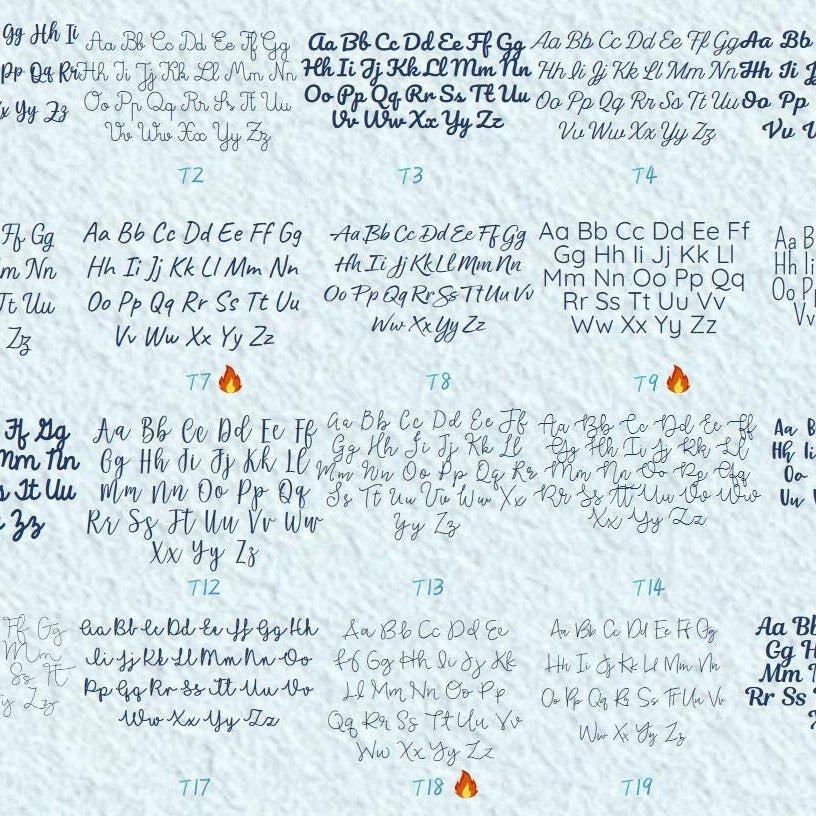 Gg Hh Ii
Pp Qq Rr
Xx Yy Zz
Aa Bb Cc Dd Ee Ff Gg
Hh Ii Jj Kk Ll Mm Nn
Oo Pp Qq Rr Ss Tt Uu
Vv Ww Xx Yy Zz
T2
Aa Bb Cc Dd Ee Ff Gg
Hh Ii Jj Kk Ll Mm Nn
Oo Pp Qq Rr Ss Tt Uu
Vv Ww Xx Yy Zz
T3
Aa Bb Cc Dd Ee Ff Gg
Hh Ii Jj Kk Ll Mm Nn
Oo Pp Qq Rr Ss Tt Uu
Vv Ww Xx Yy Zz
T4
Aa Bb
Hh Ii J
Oo Pp
Vv V
Ff Gg
m Nn
Tt Uu
Zz
Aa Bb Cc Dd Ee Ff Gg
Hh Ii Jj Kk Ll Mm Nn
Oo Pp Qq Rr Ss Tt Uu
Vv Ww Xx Yy Zz
T7
Aa Bb Cc Dd Ee Ff Gg
Hh Ii Jj Kk Ll Mm Nn
Oo Pp Qq Rr Ss Tt Uu Vv
Ww Xx Yy Zz
T8
Aa Bb Cc Dd Ee Ff
Gg Hh Ii Jj Kk Ll
Mm Nn Oo Pp Qq
Rr Ss Tt Uu Vv
Ww Xx Yy Zz
T9
Aa B
Hh Ii
Oo P
Vv
Ff Gg
Mm Nn
s Tt Uu
Zz
Aa Bb Cc Dd Ee Ff
Gg Hh Ii Jj Kk Ll
Mm Nn Oo Pp Qq
Rr Ss Tt Uu Vv Ww
Xx Yy Zz
T12
Aa Bb Cc Dd Ee Ff
Gg Hh Ii Jj Kk Ll
Mm Nn Oo Pp Qq Rr
Ss Tt Uu Vv Ww Xx
Yy Zz
T13
Aa Bb Cc Dd Ee Ff
Gg Hh Ii Jj Kk Ll
Mm Nn Oo Pp Qq
Rr Ss Tt Uu Vv Ww
Xx Yy Zz
T14
Aa B
Hh Ii
Oo
Uu V
Ff Gg
Mm
Ss Tt
y Zz
Aa Bb Cc Dd Ee Ff Gg Hh
Ii Jj Kk Ll Mm Nn Oo
Pp Qq Rr Ss Tt Uu Vv
Ww Xx Yy Zz
T17
Aa Bb Cc Dd Ee
Ff Gg Hh Ii Jj Kk
Ll Mm Nn Oo Pp
Qq Rr Ss Tt Uu Vv
Ww Xx Yy Zz
T18
Aa Bb Cc Dd Ee Ff Gg
Hh Ii Jj Kk Ll Mm Nn
Oo Pp Qq Rr Ss Tt Uu Vv
Ww Xx Yy Zz
T19
Aa Bb
Gg H
Mm T
Rr Ss